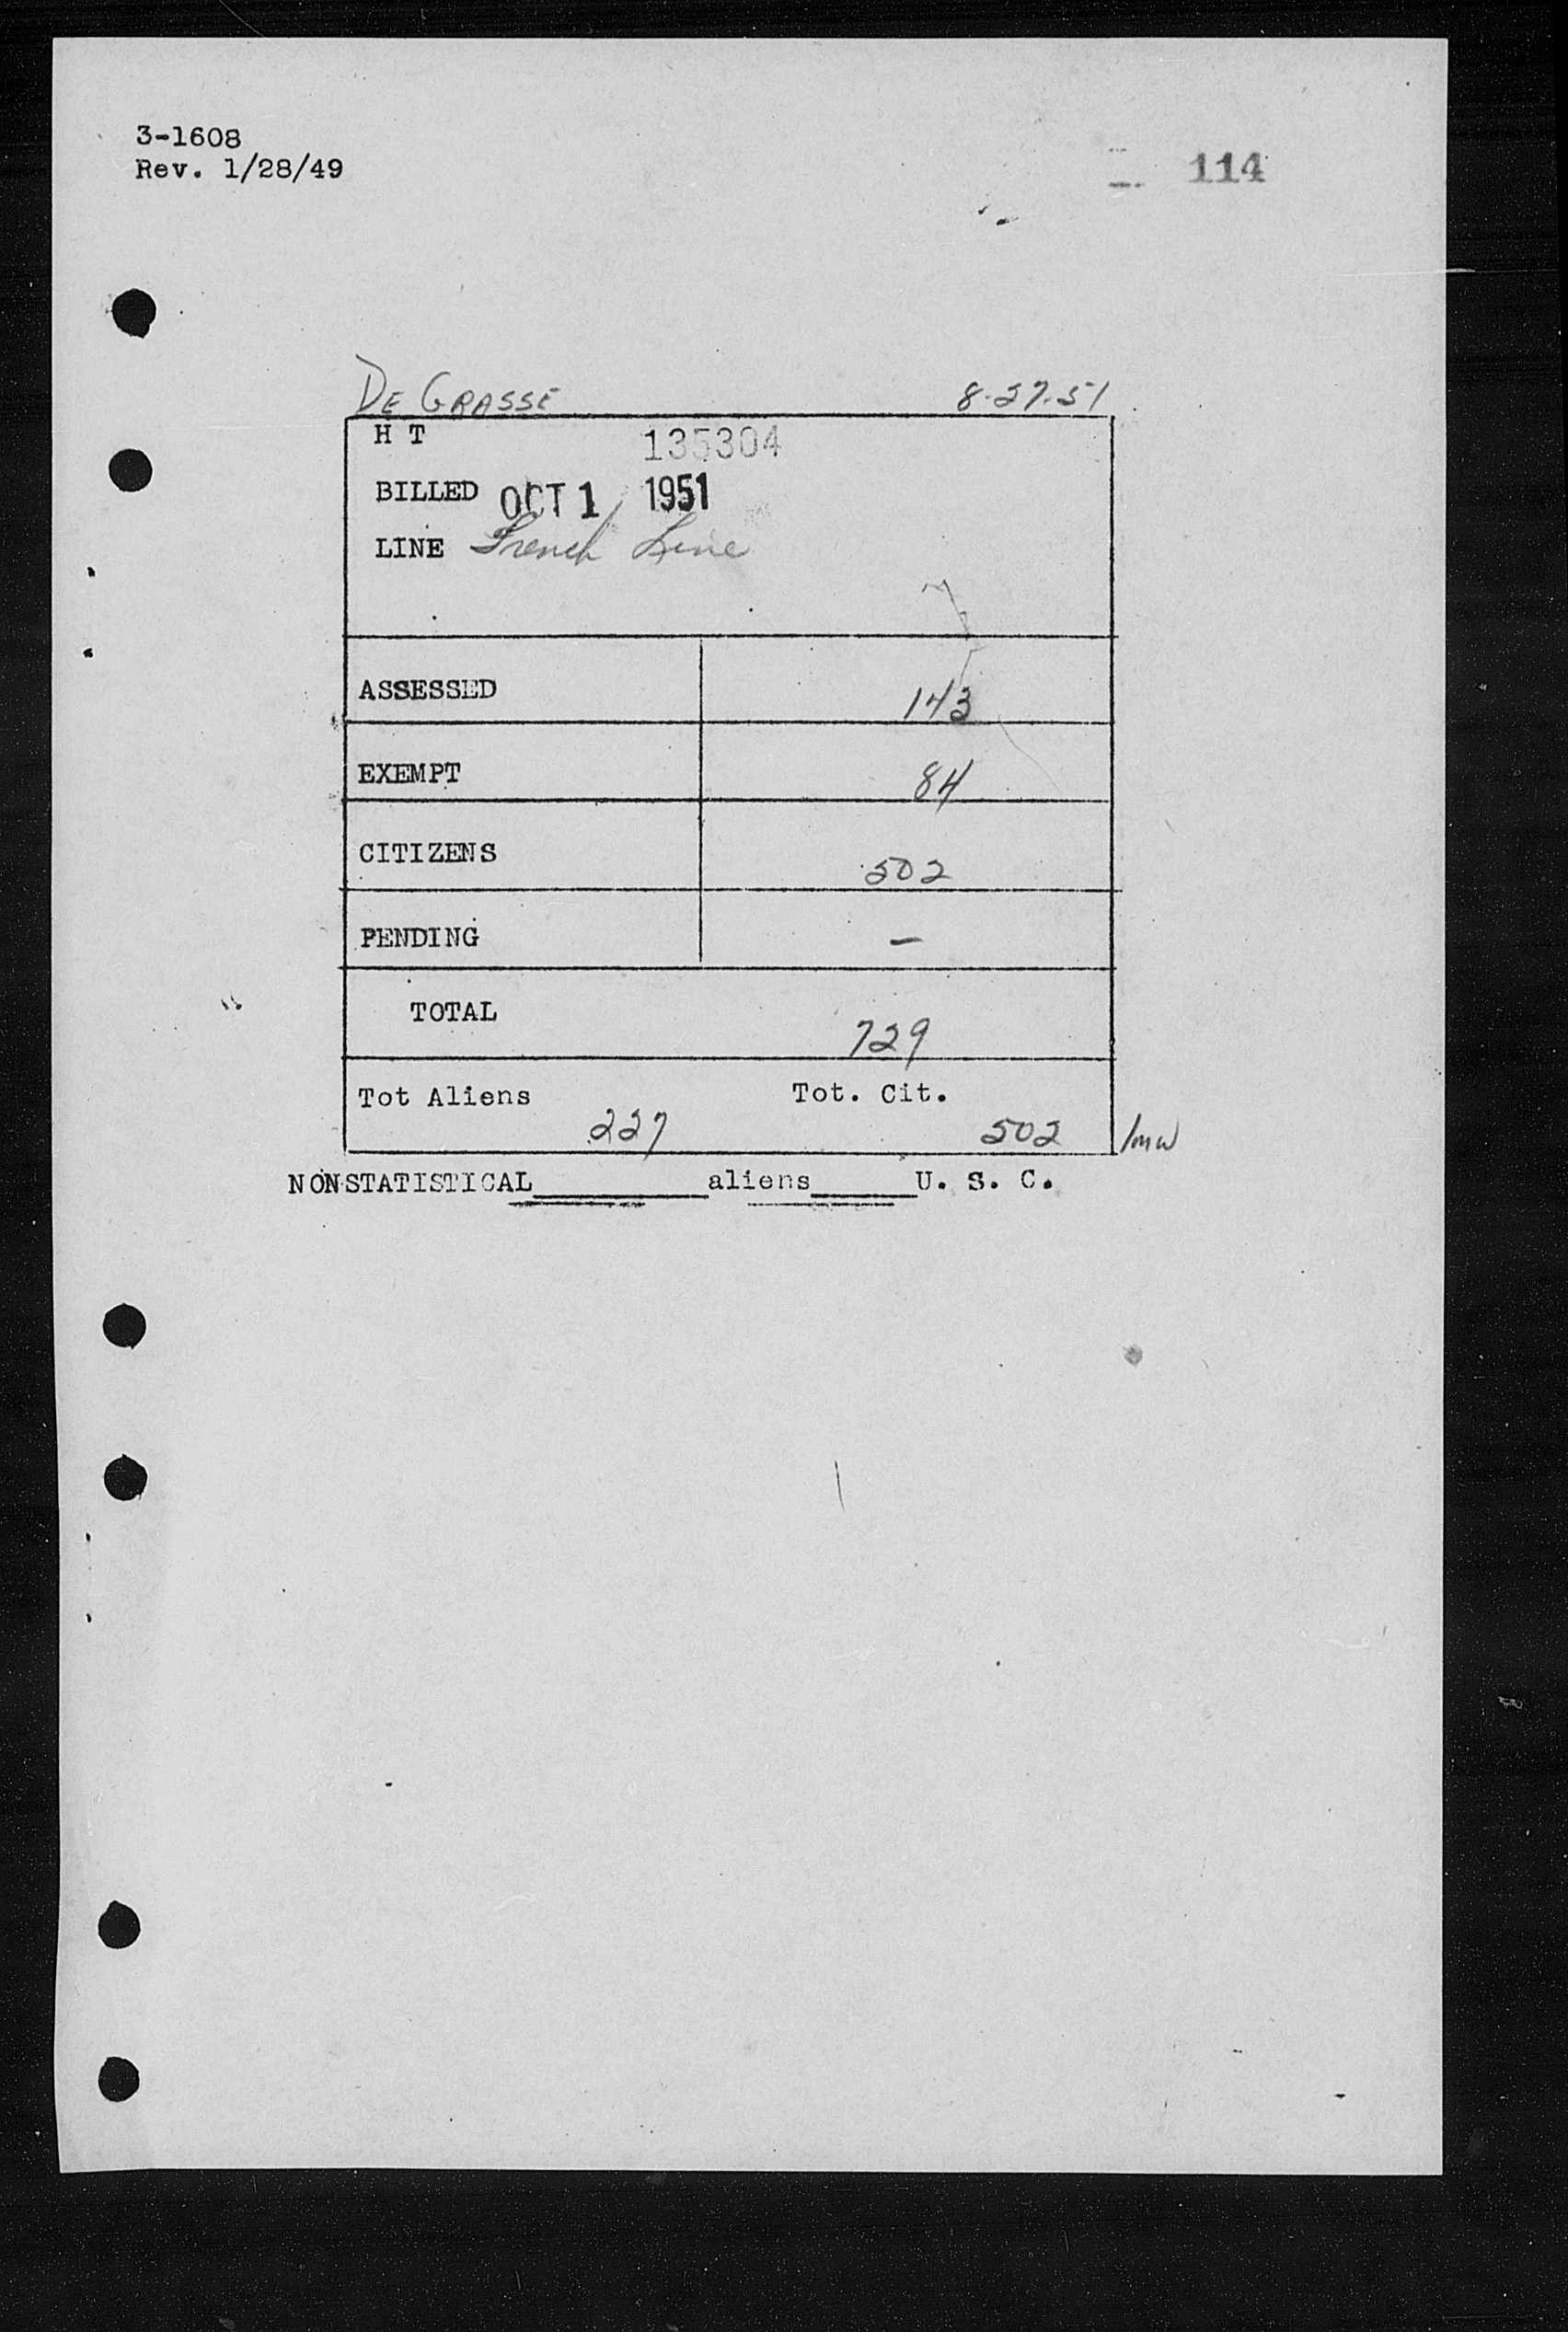 3-1608
Rev. 1/28/49
114
DE GRASSE 8-27-51
H T 135304
BILLED OCT 1 1951
LINE French Line
ASSESSED 143
EXEMPT 84
CITIZENS 502
PENDING –
TOTAL 729
Tot Aliens Tot. Cit.
227 502 /mw
NONSTATISTICAL________aliens_____U. S. C.